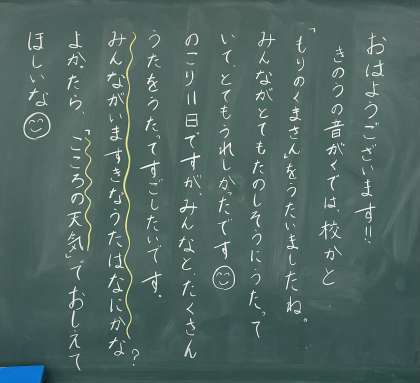 おはようございます!!
きのうの音がくでは、校かと
「もりのくまさん」をうたいましたね。
みんながとてもたのしそうにうたって
いて、とてもうれしかったです
のこり11日ですが、みんなとたくさん
うたをうたってすごしたいです。
みんながいますきなうたはなにかな?
よかたら、「こころの天気」でおしえて
ほしいな